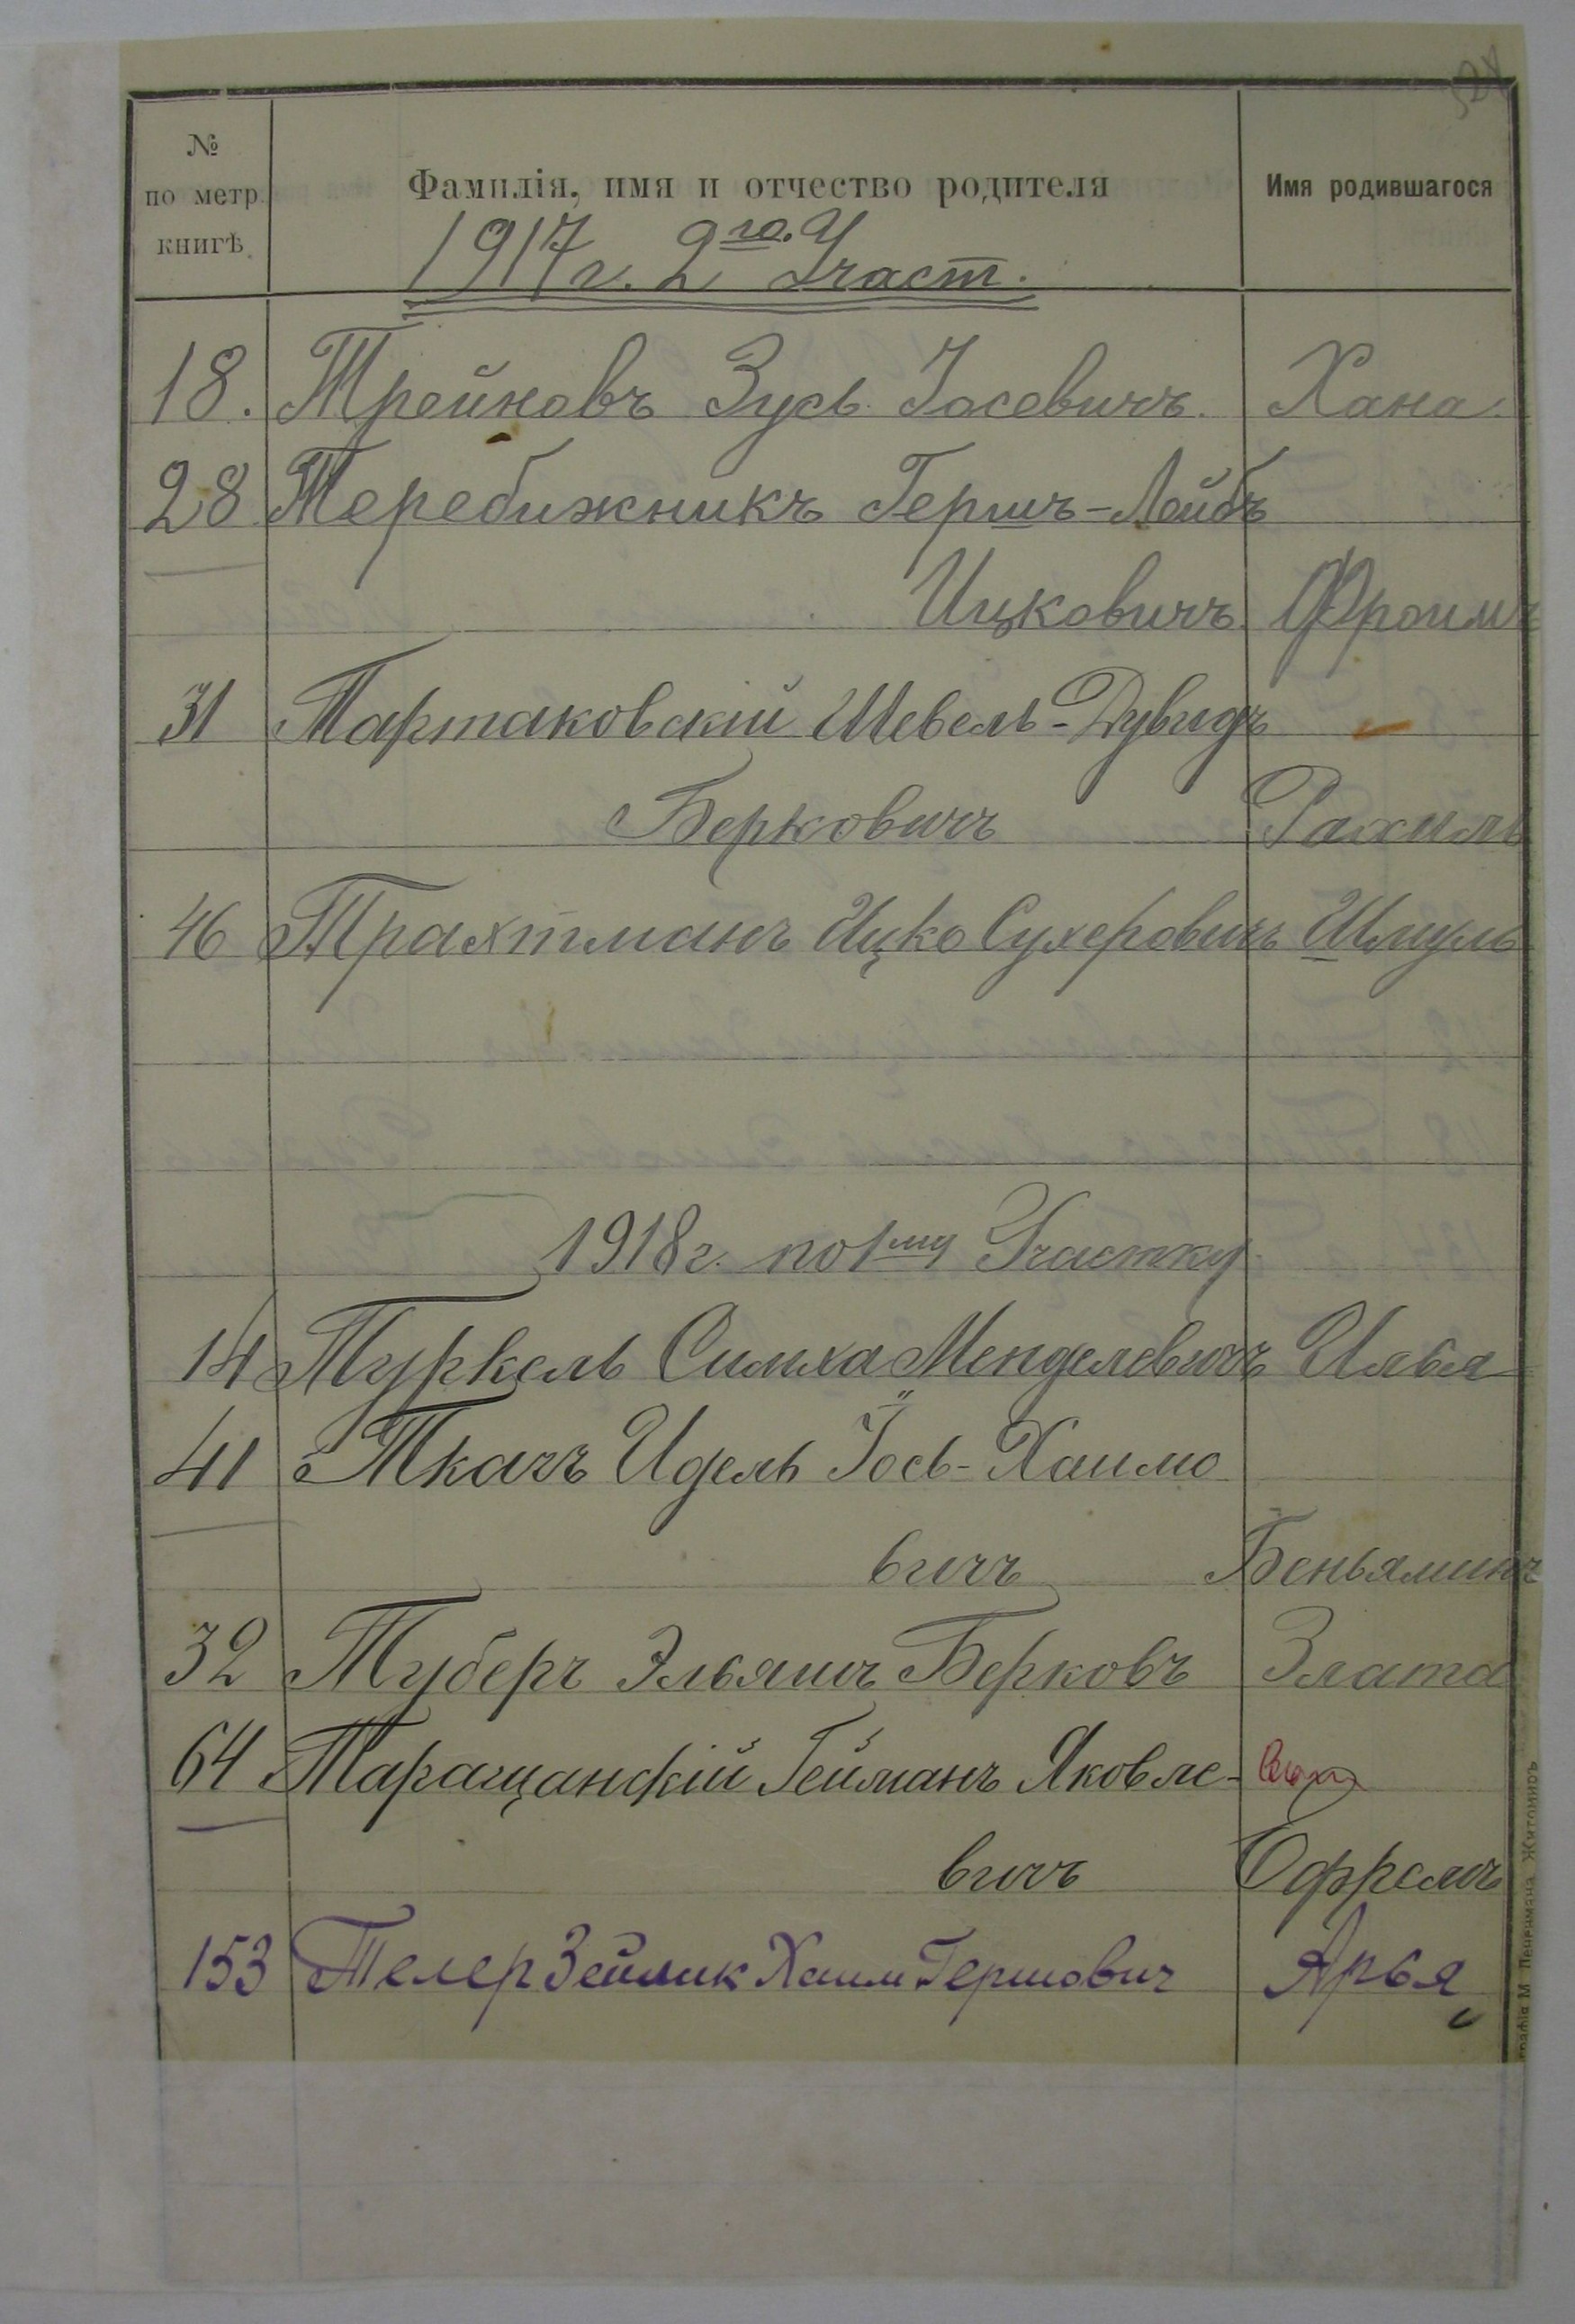 № по метр. книгѣ. Фамилія, имя и отчество родителя Имя родившагося
1917 г. 2го. Участ.
18. Трейновъ Зусь Іосевичъ. Хана.
28 Теребижникъ Гершъ-Лейбъ
Ицковичъ Фроимъ
31 Тартаковскій Шевель-Дувидъ
Берковичъ Рахиль
46 Трахтманъ Ицко Сухеровичъ Шмуль
1918 г. по 1му Участку.
14 Туркель Симха Менделевичъ Илья
41 Ткачъ Идель Іось-Хаимо
вичъ Беньяминъ
32 Туберъ Эльяшъ Берковъ Злата
64 Таращанскій Гейманъ Яковле-
вичъ Офремъ
153 Телер Зейлик Хаим Гершович Арья
графія М Лененмана Житомиръ